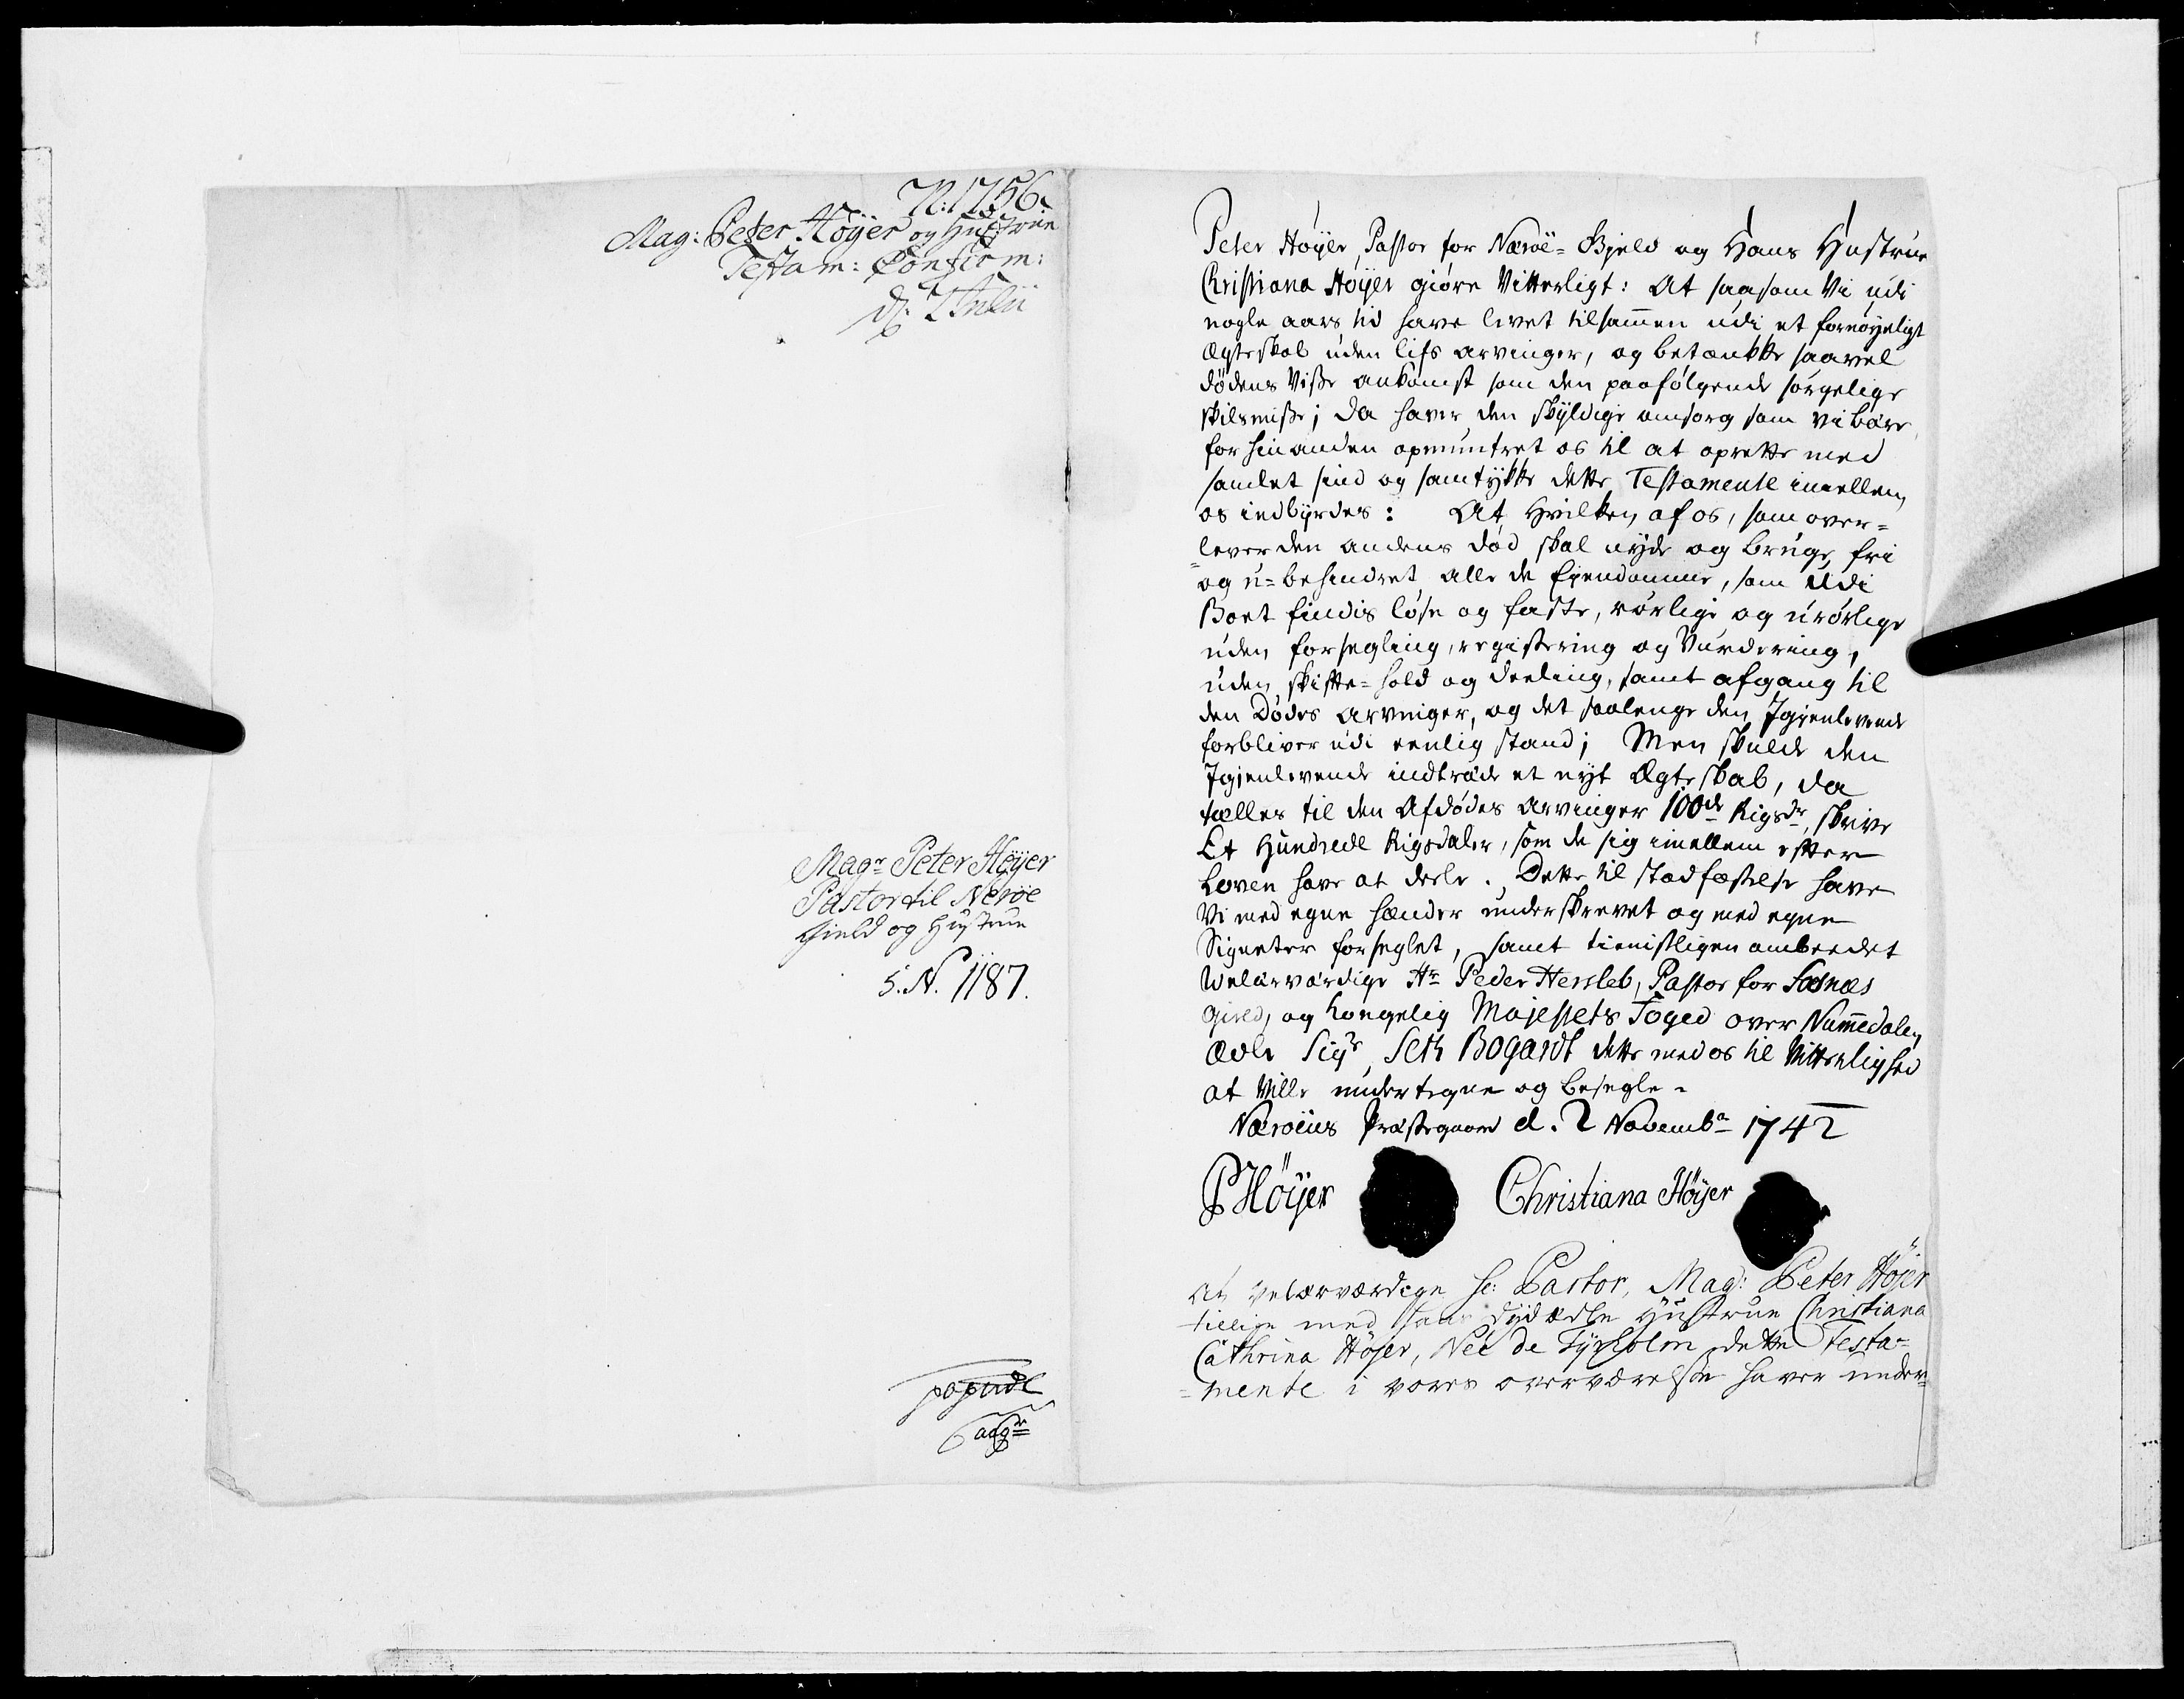 N: 1756.
Mag: Peter Höyer og Hustrue
Testam: Confirm:
d: 2 Julii
Magr Peter Höyer
Pastor til Neröe
Gield og Hustrue
S. N. 1187.
Peter Höyer, Pastor for Næröe-Gjeld og Hans Hustrue
Christiana Höyer giöre Vitterligt: At saasom Vi udi
nogle aars tid have levet tilsammen udi et fornöyeligt
Ægteskab uden lifs arvinger, og betænkke saavel
dödens Visse ankomst som den paafölgende sörgelige
skilsmisse; da haver den skyldige omsorg som vi bære
for hinanden opmuntret os til at oprette med
samlet sind og samtykke dette Testamente imellem
os indbyrdes: At Hvilken af os, som over-
lever den andens död, skal nyde og bruge fri
og u-behindret alle de Ejendomme, som udi
Boet findis löse og faste, rörlige og urörlige
uden forsegling, registering og Vurdering,
uden skifte-hold og deeling, samt afgang til
den Dödes arvinger, og det saalenge den Igienlevende
forbliver udi eenlig stand; Men skulde den
Igienlevende indtræde et nyt Ægteskab, da
tælles til den Afdödes Arvinger 100de Rigsdr, skrive
Et Hundrede Rigsdaler, som de sig imellem efter
Loven have at deele. Dette til stadfæstelse have
Vi med egne hænder underskrevet og med egne
Signeter forseglet, samt tienistligen ombeedet
Welærværdige Hr Peder Hersleb, Pastor for Fosnæs
Gield, og Kongelig Majestets Foged over Nummedalen
ædle Sigr Seth Bogardt dette med os til Vitterlighed
at Ville undertegne og besegle.
Næröens Præstegaard d. 2 Novembr 1742
PHöyer Christiana Höyer
At velærværdige Hr: Pastor, Mag: Peter Höjer
tillige med Hans dydædle Hustrue Christiana
Cathrina Höjer, Née de Tyrholm dette Testa-
-mente i vores overværelse haver under-